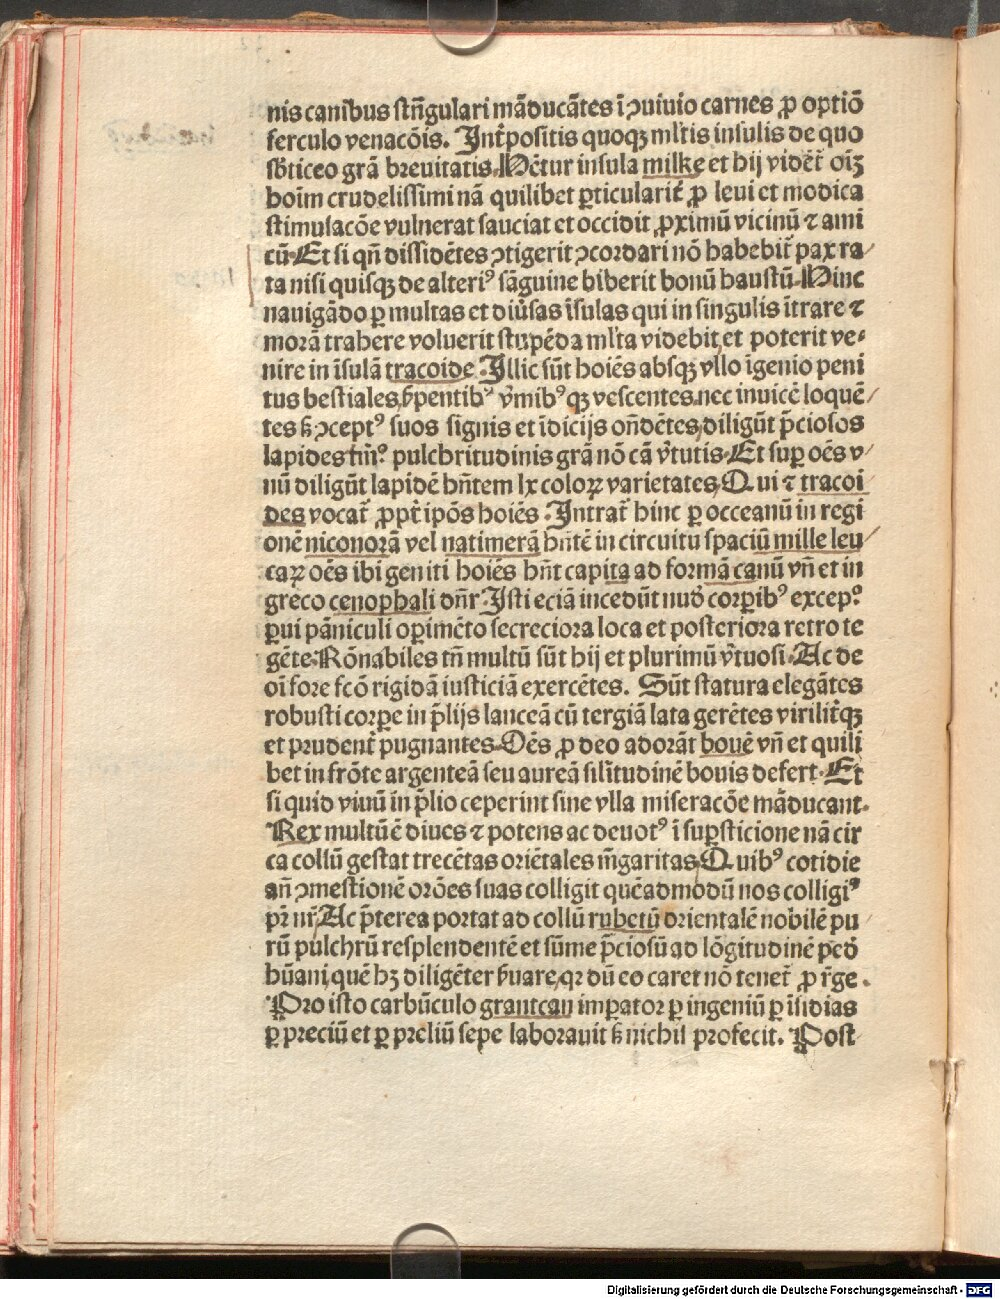 nis canibus str̄agulari mãducãtes ĩ ꝯuiuio carnes ꝓ optiõ
ferculo venacõis. Int̃positis quoqꝫ ml̃tis insulis de quo
sb̃ticeo grã breuitatis. Hẽtur insula milke et hij vidẽt̃ oĩꝫ
hoĩm crudelissimi nã quilibet ꝑticularit̃ ꝓ leui et modica
stimulacõe vulnerat sauciat et occidit ꝓximũ vicinũ ⁊ ami
cũ. Et si qñ dissidẽtes ꝯtigerit ꝯcordari nõ habebit̃ pax ra/
ta nisi quisqꝫ de alteriꝰ sãguine biberit bonũ haustũ. Hinc
nauigãdo ꝑ multas et diũsas ĩsulas qui in singulis ĩtrare ⁊
morã trahere voluerit stupẽda ml̃ta videbit, et poterit ve⸗
nire in ĩsulã tracoide. Illic sũt hoiẽs absqꝫ vllo ĩgenio peni
tus bestiales, s̃pentibꝰ v̾mibꝰqꝫ vescentes. nec inuicẽ loquẽ/
tes sꝫ ꝯceptꝰ suos signis et ĩdicijs oñdẽtes, diligũt p̃ciosos
lapides tm̃? pulchritudinis grã nõ cã v̾tutis. Et suꝑ oẽs v/
nũ diligũt lapidẽ hñtem lx coloꝝ varietates, Qui ⁊ tracoi
des vocat̃ ꝓpt̃ ip̃os hoiẽs. Intrat̃ hinc ꝑ occeanũ in regi
onẽ niconorã vel natimerã hñtẽ in circuitu spaciũ mille leu/
caꝝ oẽs ibi geniti hoiẽs hñt capita ad formã canũ vñ et in
greco cenophali dñr. Isti eciã incedũt nudo corꝑibꝰ excep?
ꝑui pãniculi oꝑimẽto secreciora loca et posteriora retro te
gẽte. Rõnabiles tñ multũ sũt hij et plurimũ v̾tuosi. Ac de
oĩ fore fcõ rigidã iusticiã exercẽtes. Sũt statura elegãtes
robusti corꝑe in p̃lijs lanceã cũ tergiã lata gerẽtes virilit̃qꝫ
et prudent̃ pugnantes. Oẽs ꝓ deo adorãt bouẽ vñ et quili
bet in frõte argenteã seu aureã sil̃itudinẽ bouis defert. Et
si quid viuũ in p̃lio ceperint sine vlla miseracõe mãducant.
Rex multũ ẽ diues ⁊ potens ac deuotꝰ ĩ suꝑsticione nã cir
ca collũ gestat trecẽtas oriẽtales m̃garitas, Quibꝰ cotidie
añ ꝯmestionẽ orões suas colligit quẽadmodũ nos colligiꝰ
pr̃ nr̃. Ac p̃terea portat ad collũ rubetũ orientalẽ nobilẽ pu/
rũ pulchrũ resplendentẽ et sũme p̃ciosũ ad lõgitudinẽ pedꝭ
hũani, quẽ hꝫ diligẽter s̃uare, qꝛ dũ eo caret nõ tenet̃ ꝓ r̃ge.
Pro isto carbũculo grantcan imꝑator ꝑ ingeniũ ꝑ ĩsidias
ꝑ preciũ et ꝑ preliũ sepe laborauit sꝫ nichil profecit. Post
Digitalisierung gefördert durch die Deutsche Forschungsgemeinschaft - DFG